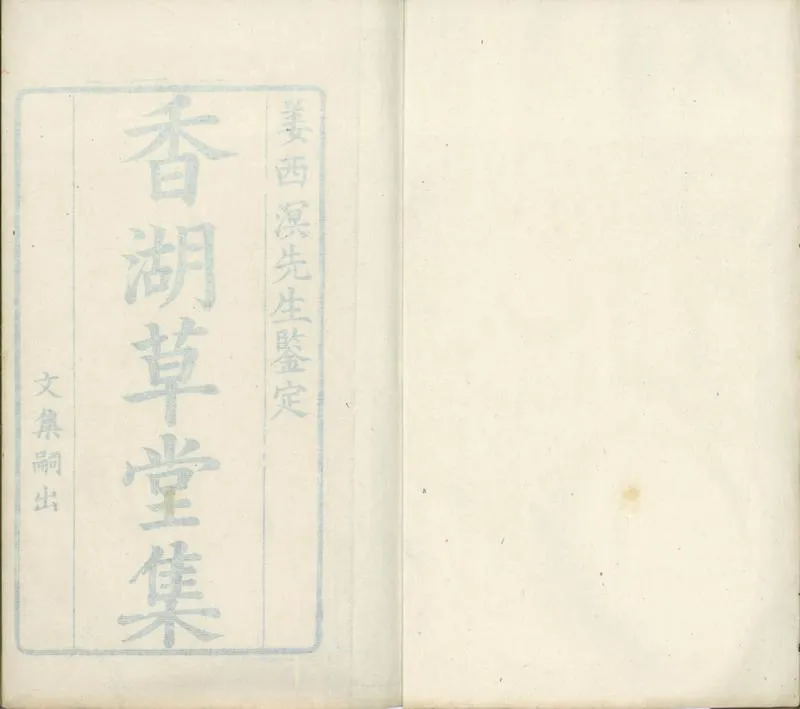 姜西溟先生鑒定
香湖草堂集
文集嗣出